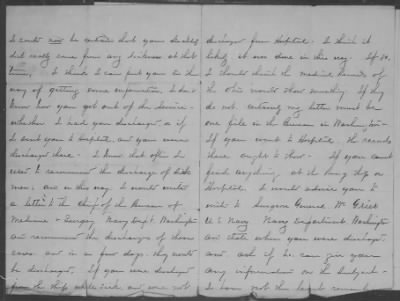 I could not be certain that your disability
did really come from any sickness at that
time, I think I can put you in the
way of getting some information. I don't
know how you got out of the Service -
whether I sent you discharged or if
I sent you to Hospital and you were
discharged there - I know that often I
used to recommend the discharge of sick
men; and in this way I would write
a letter to the Chief of the Bureau of
Medicine & Surgery Navy Dept. Washington
and recommend the discharge of these
cases and in a few days they would
be discharged. If you were discharged
from the ship while sick and were not
discharged from Hospital - I think it
likely it was done in this way. If so,
I should think the medical Records of
the ship would show something. If they
do not certainly my letter must be
on file in the Bureau in Washington -
If you went to Hospital the records
there ought to show - If you can't
find anything at the Navy Dep or
Hospital I would advise you to
write to Surgeon General Wm
U.S Navy Navy Department Washington
and state when you were discharged
and ask if he can give you
any information on the subject -
I have not the least